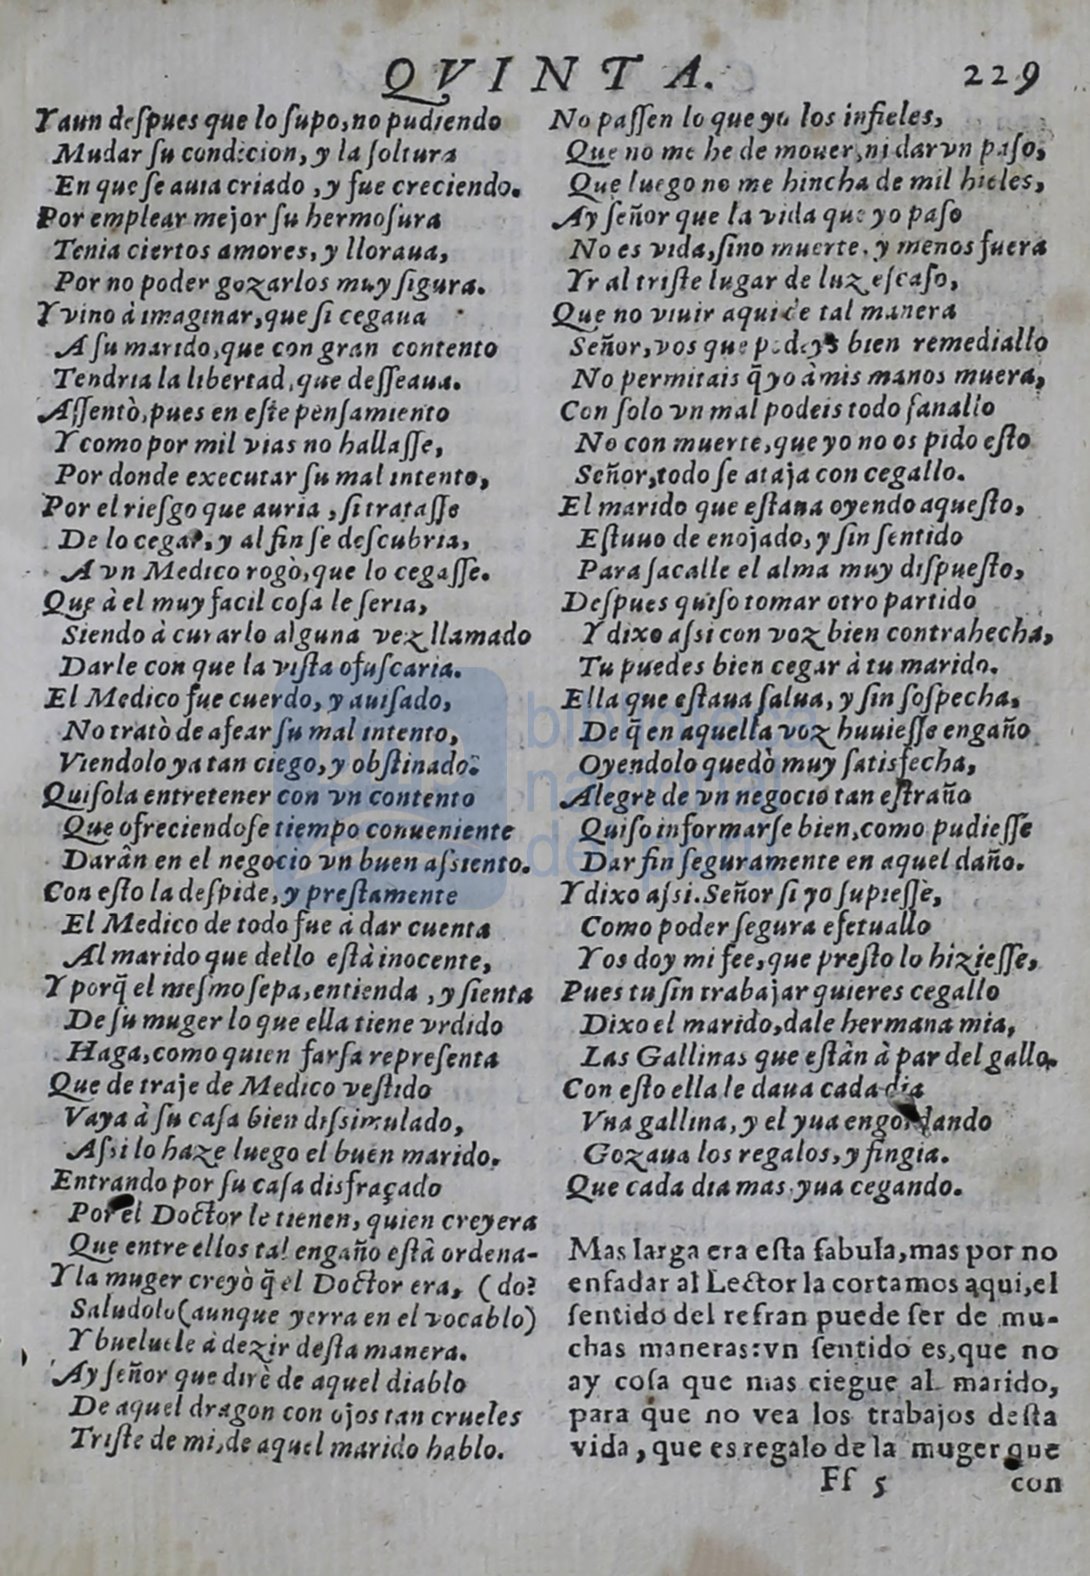 QVINTA. 229
Y aun deſpues que lo ſupo, no pudiendo
Mudar ſu condicion, y la ſoltura
En que ſe auia criado, y fue creciendo.
Por emplear mejor ſu hermoſura
Tenia ciertos amores, y lloraua,
Por no poder gozarlos muy ſigura.
Y vino à imaginar, que ſi cegaua
A ſu marido, que con gran contento
Tendria la libertad, que deſſeaua.
Aſſentò, pues en eſte penſamiento
Y como por mil vias no hallaſſe,
Por donde executar ſu mal intento,
Por el rieſgo que auria, ſi trataſſe
De lo cegar, y al fin ſe deſcubria,
A vn Medico rogò, que lo cegaſſe.
Que à el muy facil coſa le ſeria,
Siendo à curarlo alguna vez llamado
Darle con que la viſta ofuſcaria.
El Medico fue cuerdo, y auiſado,
No tratò de afear ſu mal intento,
Viendolo ya tan ciego, y obſtinado:
Quiſola entretener con vn contento
Que ofreciendoſe tiempo conueniente
Darân en el negocio vn buen aſsiento.
Con eſto la deſpide, y preſtamente
El Medico de todo fue à dar cuenta
Al marido que dello eſtà inocente,
Y porq̃ el meſmo ſepa, entienda, y ſienta
De ſu muger lo que ella tiene vrdido
Haga, como quien farſa repreſenta
Que de traje de Medico veſtido
Vaya à ſu caſa bien diſsimulado,
Aſsi lo haze luego el buen marido.
Entrando por ſu caſa disfraçado
Por el Doctor le tienen, quien creyera
Que entre ellos tal engaño eſtà ordena-
Y la muger creyò q̃ el Doctor era, (do?
Saludolo (aunque yerra en el vocablo)
Y bueluele à dezir deſta manera.
Ay ſeñor que dirè de aquel diablo
De aquel dragon con ojos tan crueles
Triſte de mi, de aquel marido hablo.
No paſſen lo que yo los infieles,
Que no me he de mouer, ni dar vn paſo,
Que luego no me hincha de mil hieles,
Ay ſeñor que la vida que yo paſo
No es vida, ſino muerte, y menos fuera
Yr al triſte lugar de luz eſcaſo,
Que no viuir aqui de tal manera
Señor, vos que podeys bien remediallo
No permitais q̃ yo à mis manos muera,
Con ſolo vn mal podeis todo ſanallo
No con muerte, que yo no os pido eſto
Señor, todo ſe ataja con cegallo.
El marido que eſtaua oyendo aqueſto,
Eſtuuo de enojado, y ſin ſentido
Para ſacalle el alma muy diſpueſto,
Deſpues quiſo tomar otro partido
Y dixo aſsi con voz bien contrahecha,
Tu puedes bien cegar à tu marido.
Ella que eſtaua ſalua, y ſin ſoſpecha,
De q̃ en aquella voz huuieſſe engaño
Oyendolo quedò muy ſatisfecha,
Alegre de vn negocio tan eſtraño
Quiſo informarſe bien, como pudieſſe
Dar fin ſeguramente en aquel daño.
Y dixo aſsi. Señor ſi yo ſupieſſe,
Como poder ſegura efetuallo
Yos doy mi fee, que preſto lo hizieſſe,
Pues tu ſin trabajar quieres cegallo
Dixo el marido, dale hermana mia,
Las Gallinas que eſtàn à par del gallo.
Con eſto ella le daua cada dia
Vna gallina, y el yua engordando
Gozaua los regalos, y fingia.
Que cada dia mas yua cegando.
Mas larga era eſta fabula, mas por no
enfadar al Lector la cortamos aqui, el
ſentido del refran puede ſer de mu-
chas maneras: vn ſentido es, que no
ay coſa que mas ciegue al marido,
para que no vea los trabajos deſta
vida, que es regalo de la muger que
Ff 5 con
biblioteca
nacional
del Perú